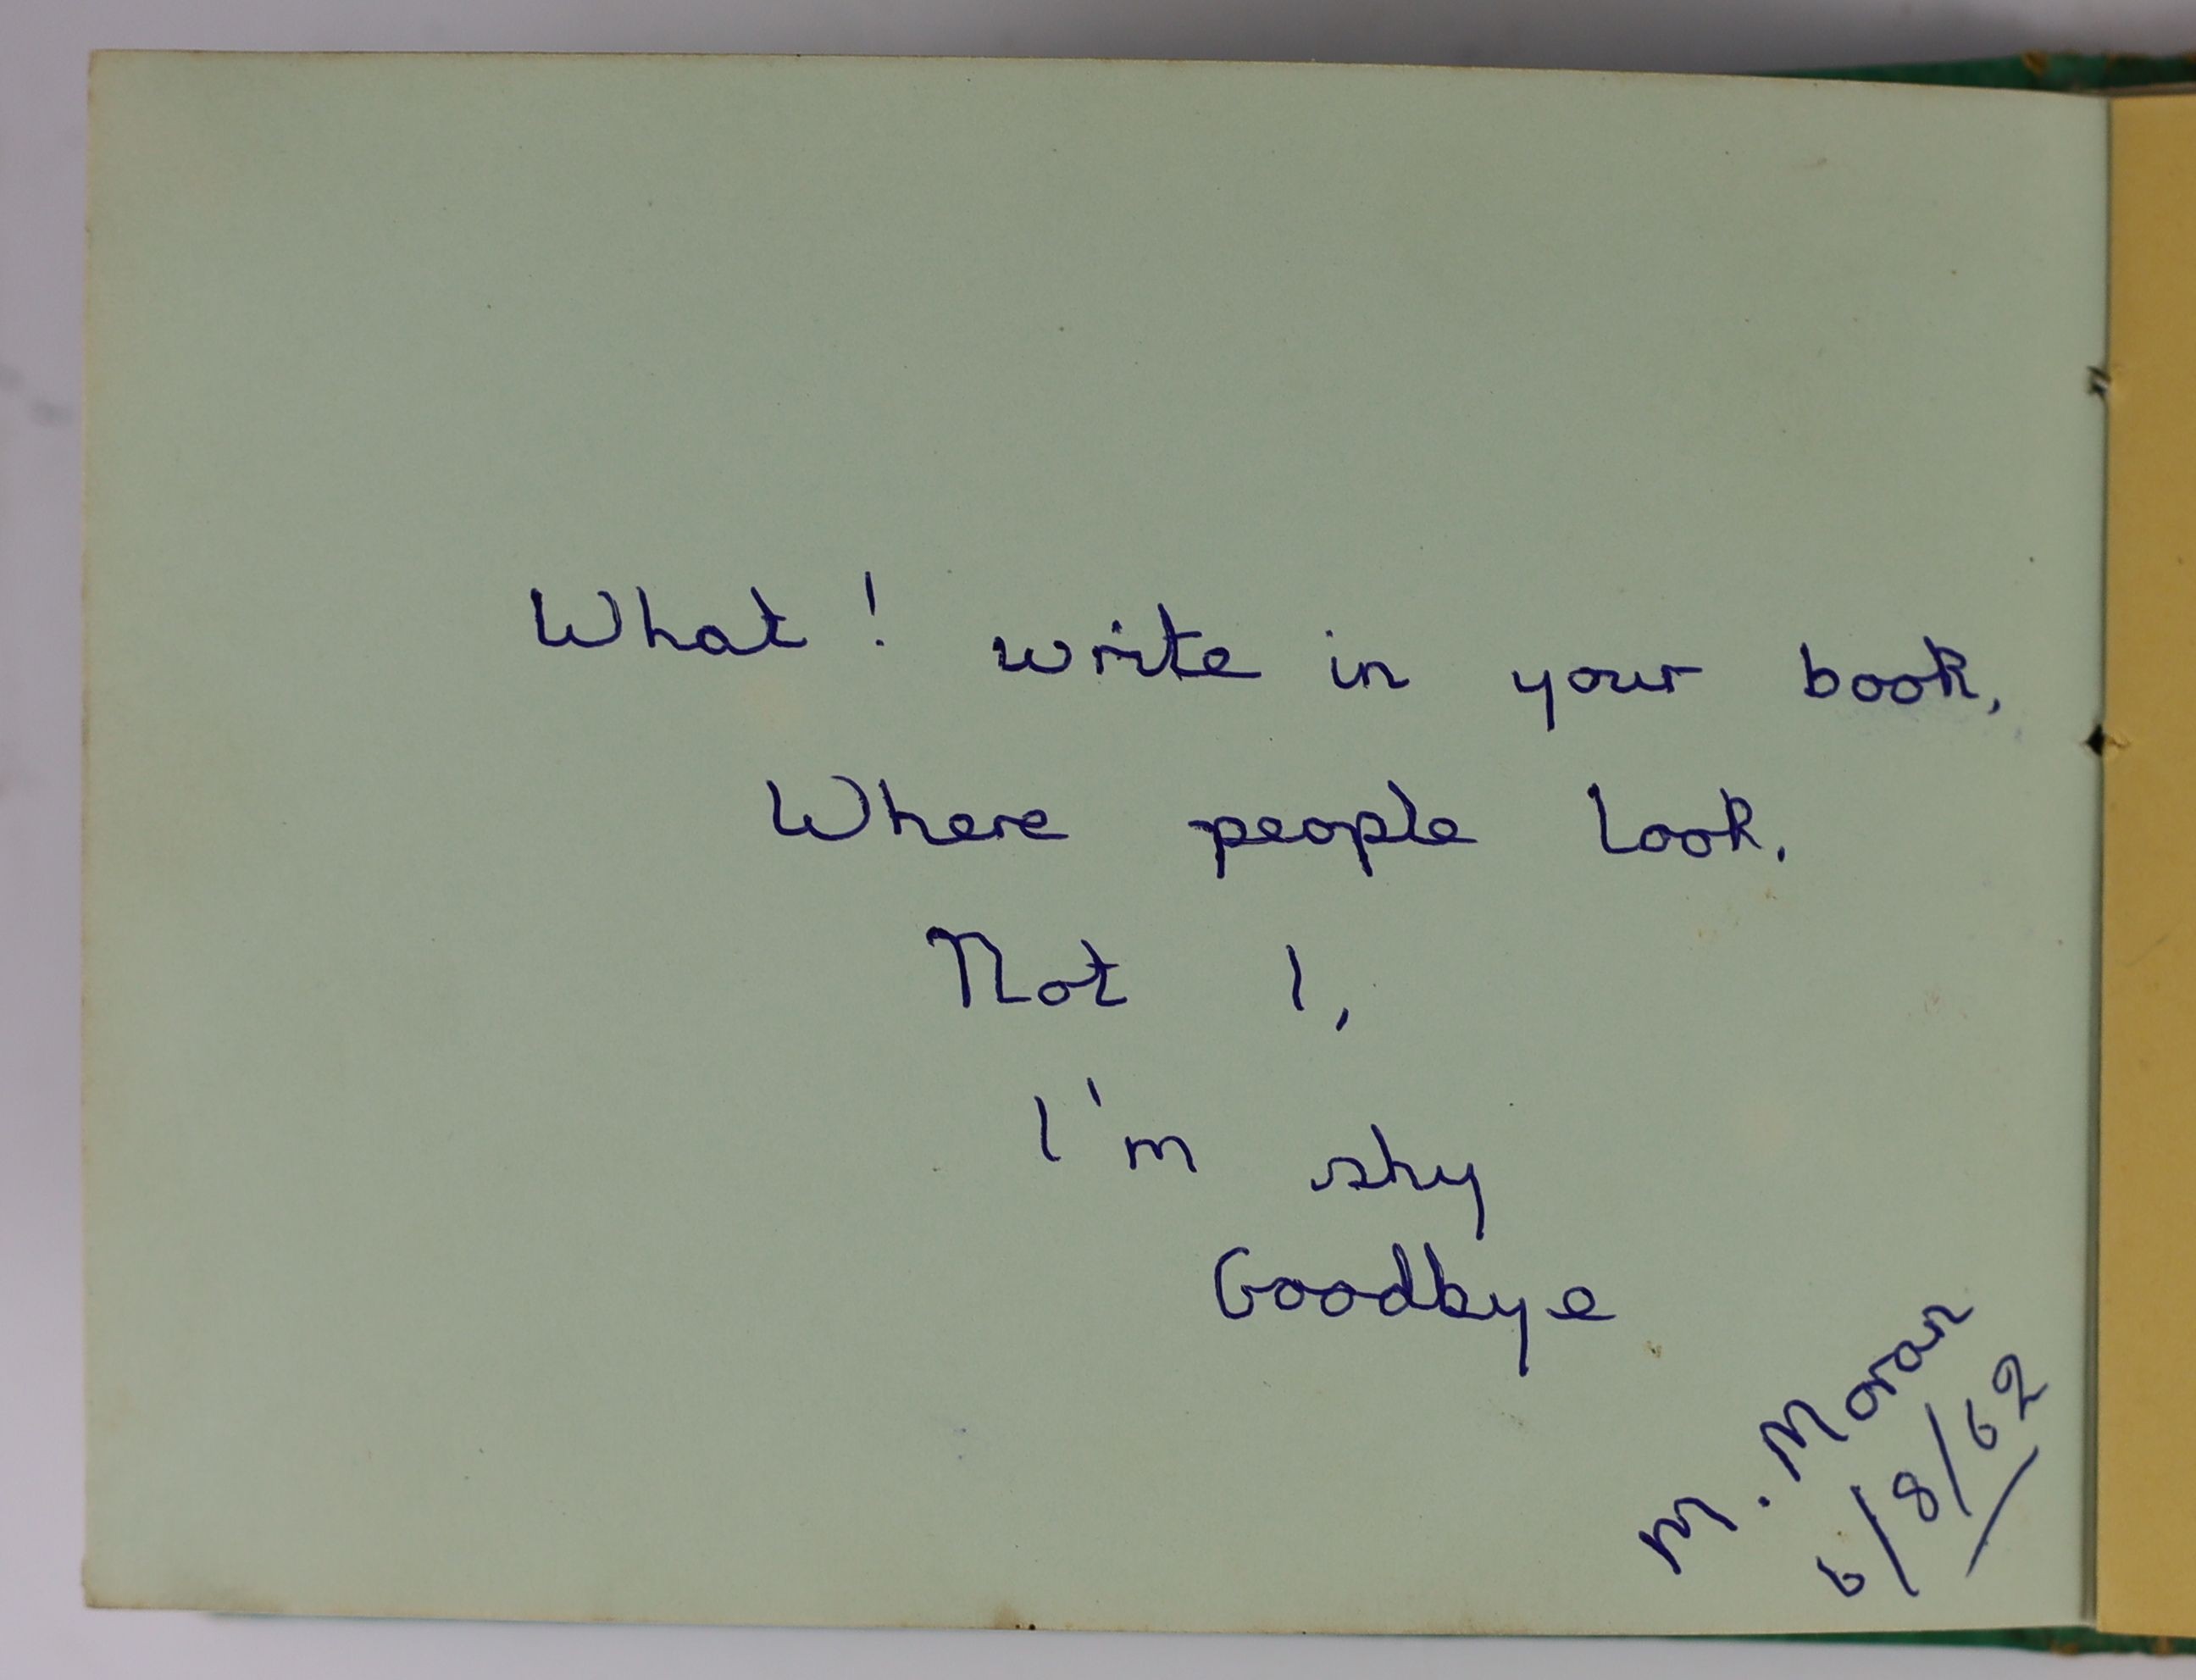 What! write in your book,
Where people look.
Not I,
I'm shy
Goodbye
M. Moran
6/8/62